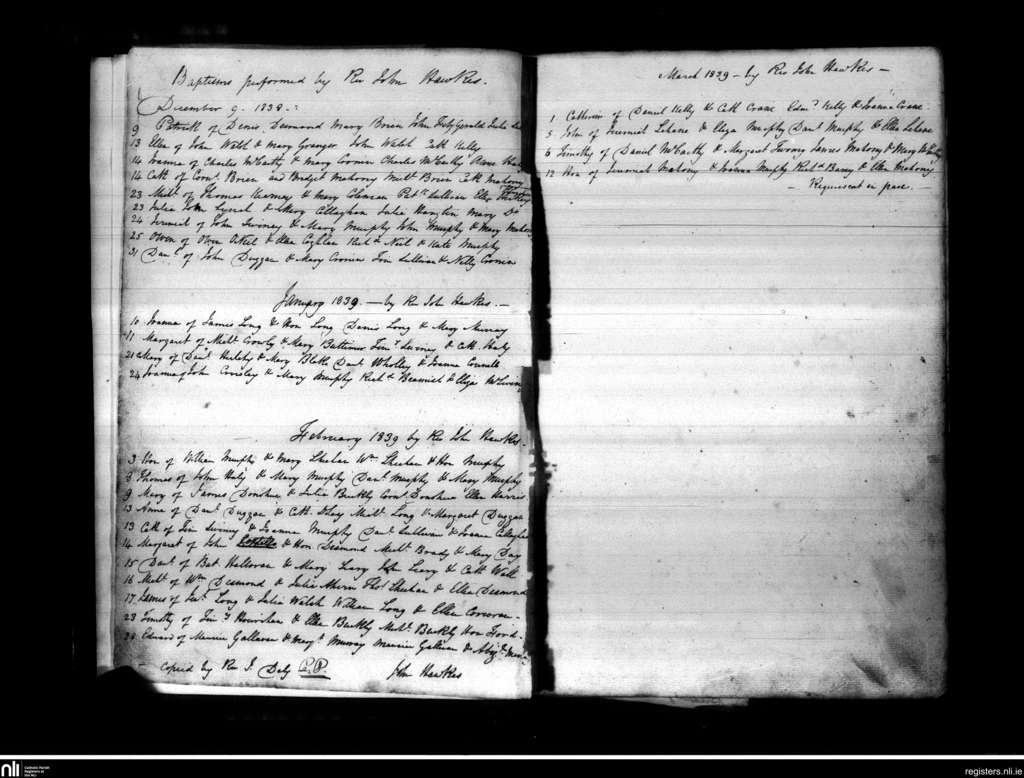 Baptisms performed by Rev John Hawkes.
December 9. 1838.
9 Patrick of Denis Desmond Mary Brien John FitzGerald Julia
13 Ellen of John Walsh & Mary Granger John Walsh Cath Kelly
14 Joanna of Charles McCarthy & Mary Cronin Charles McCarthy
14 Cath of Corns. Brien and Bridget Mahony Michl Brien Cath Mahony
23 Michl of Thomas Kearney & Mary Coleman Patk Sullivan Ellen
23 Julia John Lynch & Mary Callaghan Julia Mary Do
24 Jeremiah of John Sweeney & Mary Murphy John Murphy & Mary
25 Owen of Owen & Ellen Coghlan Richd Neil & Kate Murphy
31 Danl of John Duggan & Mary Cronin Tim Sullivan & Nelly Cronin
January 1839. — by Rev John Hawkes. —
10 Joanna of James Long & Hon Long Denis Long & Mary Murray
11 Margaret of Michl Crowly & Mary Buttimer Timy & Cath Healy
21 Mary of Danl & Mary Danl & Joanna
24 Joanna of John Crowley & Mary Murphy Richd Beamish & Eliza
February 1839 by Rev John Hawkes.
3 Hon of William Murphy & Mary Sheehan Wm Sheehan & Hon Murphy
8 Thomas of John Healy & Mary Murphy Danl Murphy & Mary Murphy
9 Mary of James Donohue & Julia Buckly Corns. Donohue Ellen Harris
13 Anne of Danl Duggan & Cath Michl Long & Margaret Duggan
13 Cath of Tim & Joanna Murphy Danl Sullivan & Joanna
14 Margaret of John & Hon Desmond Michl Brady & Mary Day
15 Danl of Bat Halloran & Mary Leary John Leary & Cath Wall
16 Michl of Wm Desmond & Julia Thos Sheehan & Ellen Desmond
17 James of Long & Julia Walsh William Long & Ellen Corcoran.
23 Timothy of Timy Hourihan & Ellen Buckly Michl Buckly Hon Ford.
24 Edward of Maurice & Margt Murray Maurice &
copied by Rev J. Daly P.P. John Hawkes
March 1839 — by Rev John Hawkes —
1 Catherine of Daniel Kelly & Cath Crane Edmd Kelly & Joanna Crane.
5 John of Jeremiah Lehane & Eliza Murphy Danl Murphy & Ellen Lehane
6 Timothy of Daniel McCarthy & Margaret James Mahony & Mary McCarthy
12 Hon of Jeremiah Mahony & Joanna Murphy Richd Barry & Ellen Mahony
— Requiescat in pace. —
nli
Catholic Parish
Registers at
the NLI
registers.nli.ie